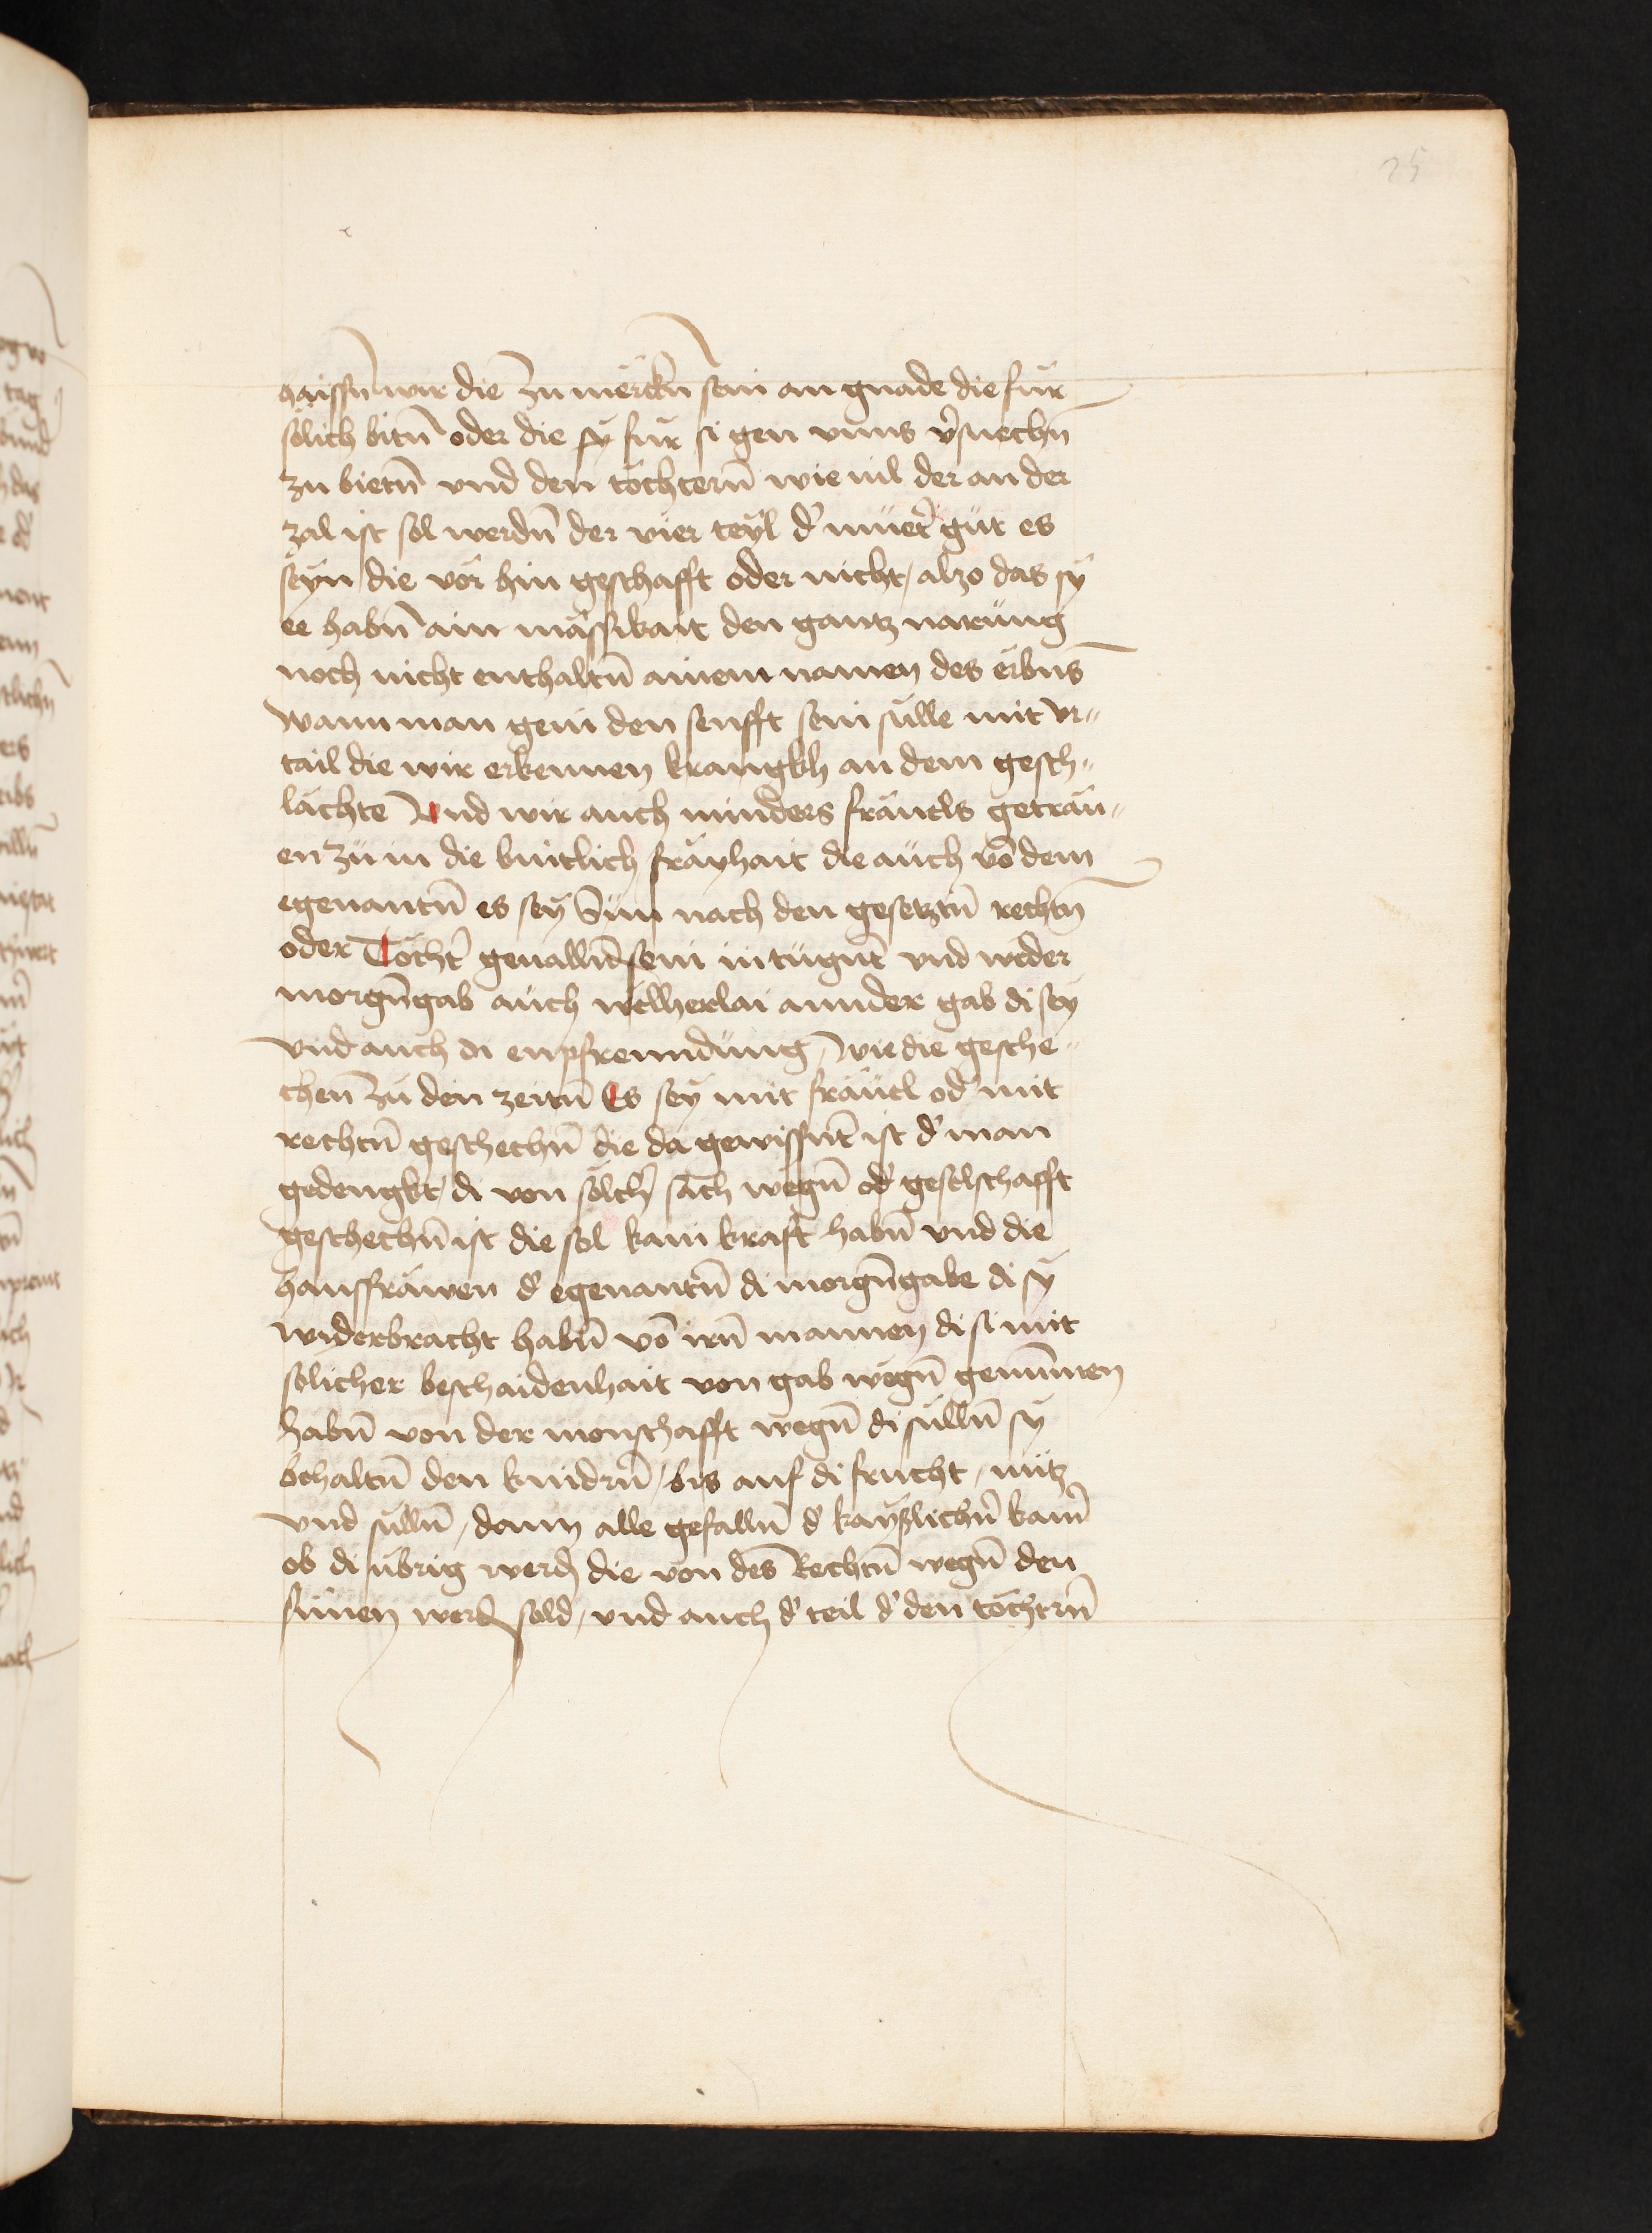 25
haissn̄ wir die zu merckn̄ sein an gnade die fur
sölich bitn̄ oder die sy fur si gen vnns v̾suechn̄
zu bietn̄ vnd den töchtern̄ wie uil der an der
zal ist sol werdn̄ der vier teyl d̾ muet̾ gut es
seyn die vor hin geschafft oder nicht / alzo das sy
ee habn̄ ain mässikait den gantz narung
noch nicht enthaltn̄ ainem namen des erbns̄
wann man gein den senfft sein sulle mit vr„
tail die wir erkennen krangkh an dem gesch„
lächte Vnd wir auch minders fräuels geträu„
en zu in die leutlich fräyhait die auch vō dem
egenantn̄ es sey Sun nach den gesetztn̄ rechtn̄
oder Töcht̾ genallnd̄ sein in tugnt̄ vnd weder
morgn̄gab auch welherlai annder gab di sey
vnd auch di enpfremdung / wie die gesche„
chen̄ zu den zeitn̄ Es sey mit fräuel od̾ mit
rechtn̄ geschechn̄ die da gewissnt̄ ist d̾ man
gedengkt / di von sölch̾ sach wegn̄ od̾ geselschafft
geschechn̄ ist die sol kain kraft habn̄ vnd die
hausfräwen d̾ egenantn̄ di morgn̄gabe di sy
widerbracht habn̄ vō irn̄ mannen di si mit
solicher beschaidenhait von gab wegn̄ genūmen
habn̄ von der monschafft wegn̄ di sulln̄ sy
behaltn̄ den kindrn̄ / bis auf di frucht / nutz
vnd sulln̄ / dann alle gefalln̄ d̾ kayszlichn̄ kam̾
ob di ubrig werdn̄ die von des Rechtn̄ wegn̄ den
sunen werdn̄ sold / vnd auch d̾ teil d̾ den töchtrn̄